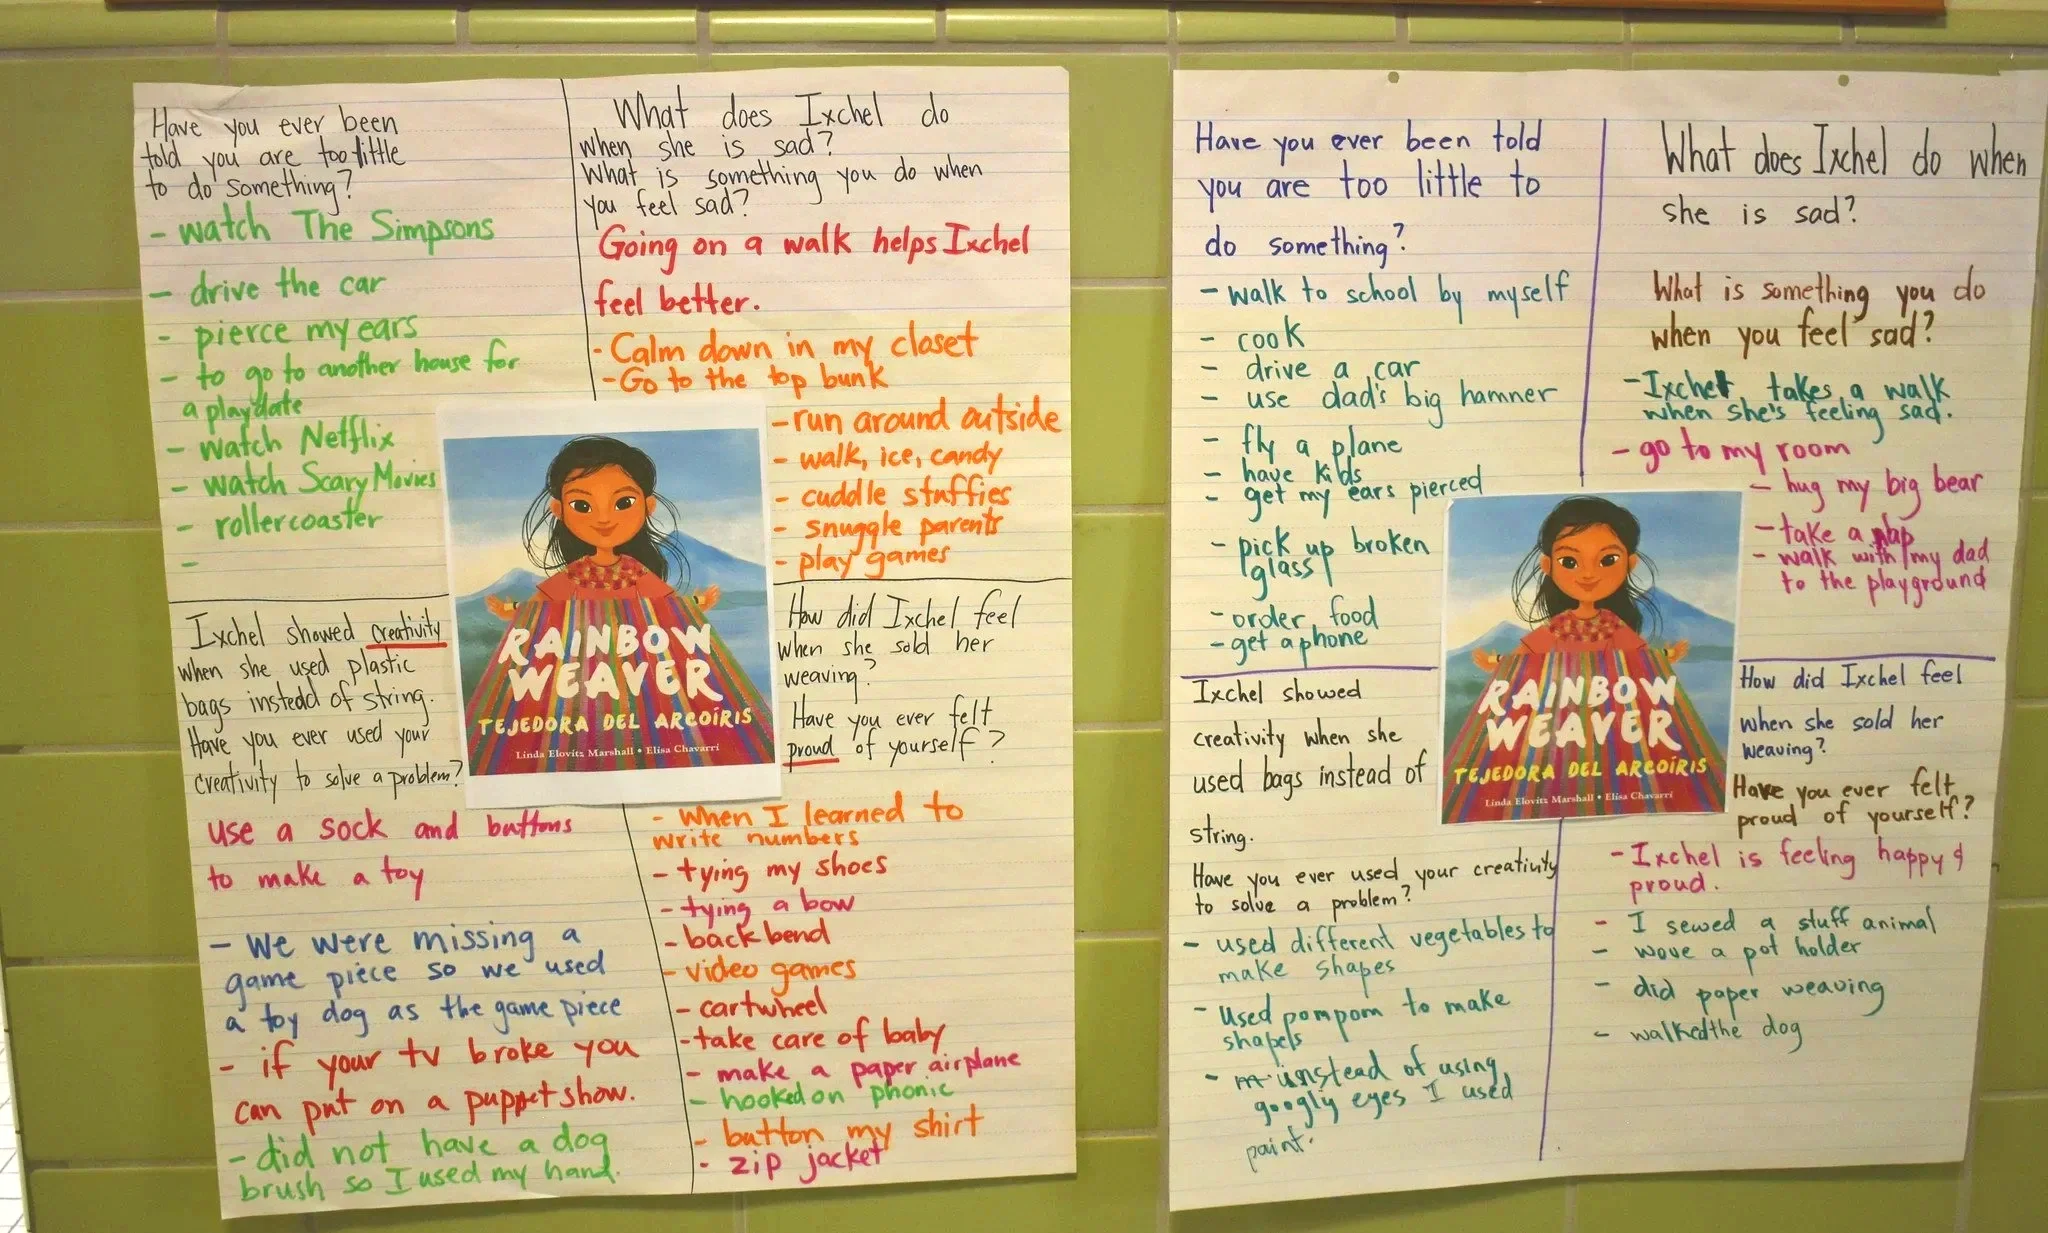 Have you ever been
told you are too little
to do something?
- watch The Simpsons
- drive the car
- pierce my ears
- to go to another house for
a playdate
- watch Netflix
- watch Scary Movies
- rollercoaster
-
What does Ixchel do
when she is sad?
What is something you do when
you feel sad?
Going on a walk helps Ixchel
feel better.
- Calm down in my closet
- Go to the top bunk
- run around outside
- walk, ice, candy
- cuddle stuffies
- snuggle parents
- play games
Ixchel showed creativity
when she used plastic
bags instead of string.
Have you ever used your
creativity to solve a problem?
use a sock and buttons
to make a toy
- We were missing a
game piece so we used
a toy dog as the game piece
- if your tv broke you
can put on a puppet show.
- did not have a dog
brush so I used my hand.
RAINBOW
WEAVER
TEJEDORA DEL ARCOÍRIS
Linda Elovitz Marshall • Elisa Chavarri
How did Ixchel feel
when she sold her
weaving?
Have you ever felt
proud of yourself?
- when I learned to
write numbers
- tying my shoes
- tying a bow
- back bend
- video games
- cartwheel
- take care of baby
- make a paper airplane
- hooked on phonic
- button my shirt
- zip jacket
Have you ever been told
you are too little to
do something?
- walk to school by myself
- cook
- drive a car
- use dad's big hamner
- fly a plane
- have kids
- get my ears pierced
- pick up broken
glass
- order food
- get a phone
What does Ixchel do when
she is sad?
What is something you do
when you feel sad?
- Ixchel takes a walk
when she's feeling sad.
- go to my room
- hug my big bear
- take a nap
- walk with my dad
to the playground
Ixchel showed
creativity when she
used bags instead of
string.
Have you ever used your creativity
to solve a problem?
- used different vegetables to
make shapes
- used pompom to make
shapels
- instead of using
googly eyes I used
paint.
RAINBOW
WEAVER
TEJEDORA DEL ARCOÍRIS
Linda Elovitz Marshall • Elisa Chavarri
How did Ixchel feel
when she sold her
weaving?
Have you ever felt
proud of yourself?
- Ixchel is feeling happy &
proud.
- I sewed a stuff animal
- wove a pot holder
- did paper weaving
- walked the dog